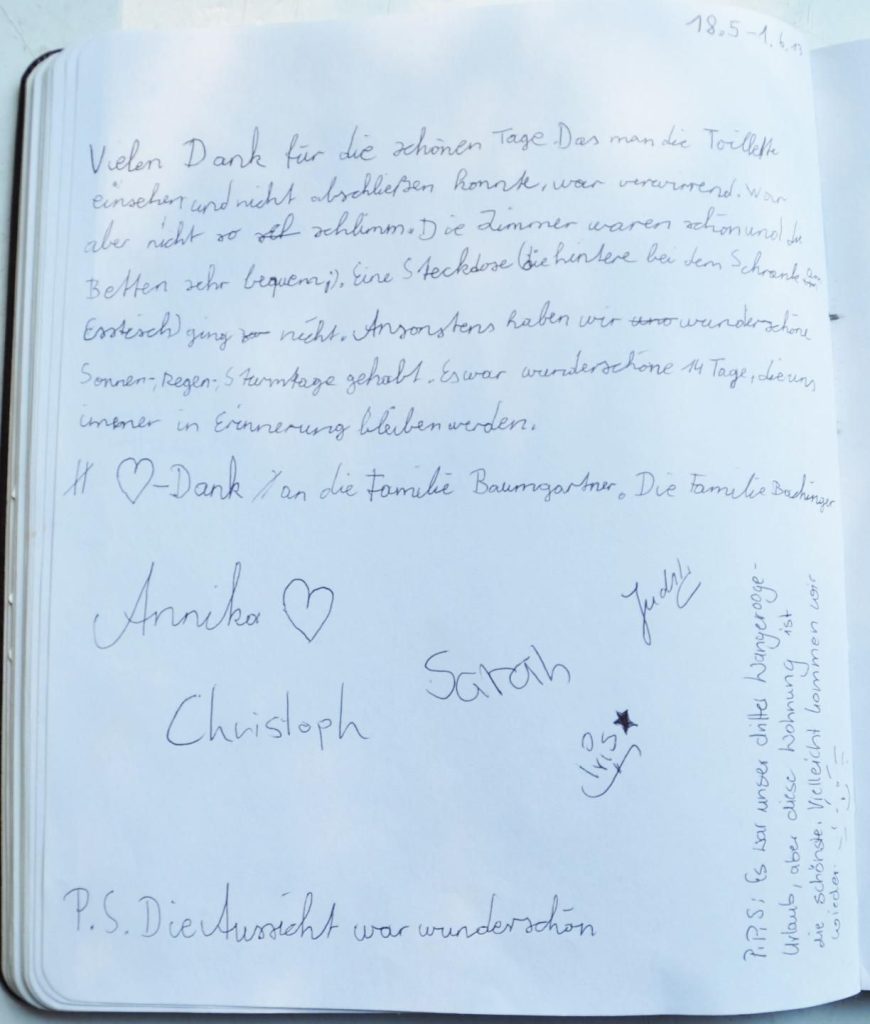 18.5-1.6.13
Vielen Dank für die schönen Tage. Das man die Toillette
einsehen und nicht abschließen konnte, war verwirrend. War
aber nicht so schlimm. Die Zimmer waren schön und die
Betten sehr bequem ;). Eine Steckdose (die hintere bei dem Schrank am
Esstisch) ging nicht. Ansonstens haben wir wunderschöne
Sonnen-, Regen-, Sturmtage gehabt. Es war wunderschöne 14 Tage, die uns
immer in Erinnerung bleiben werden.
♡-Dank an die Familie Baumgartner. Die Familie Bachinger
Annika ♡
Judith
Sarah
Christoph
Iris ★
P.S. Die Aussicht war wunderschön
P.P.S: Es war unser dritter Wangerooge-
Urlaub, aber diese Wohnung ist
die schönste. Vielleicht kommen wir
wieder